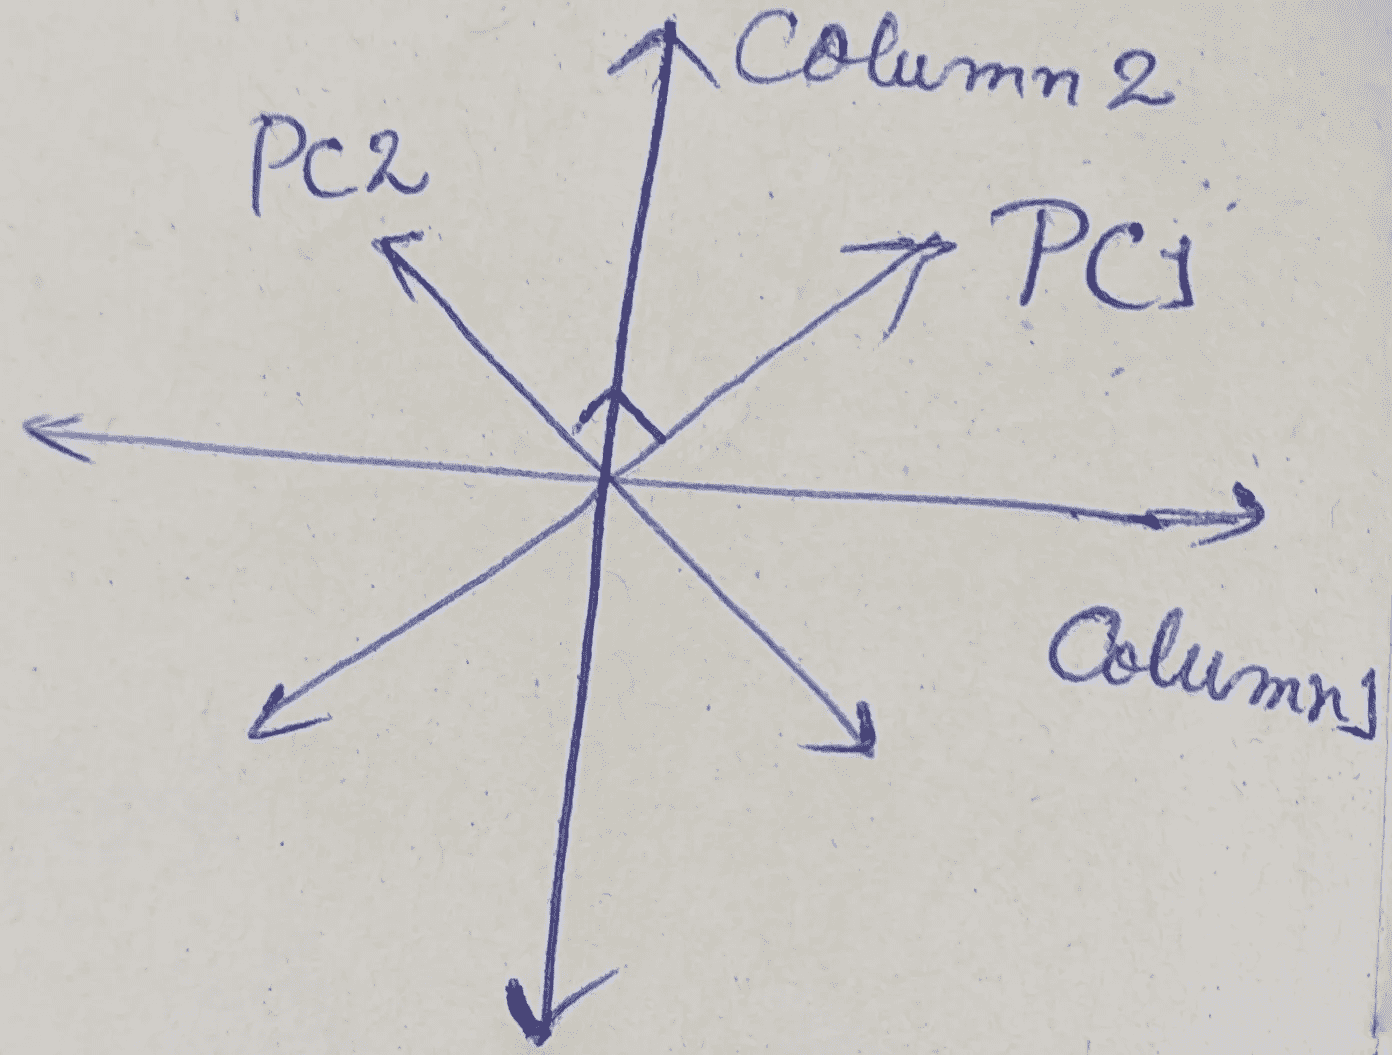 Column 2
PC2
PC1
Column 1